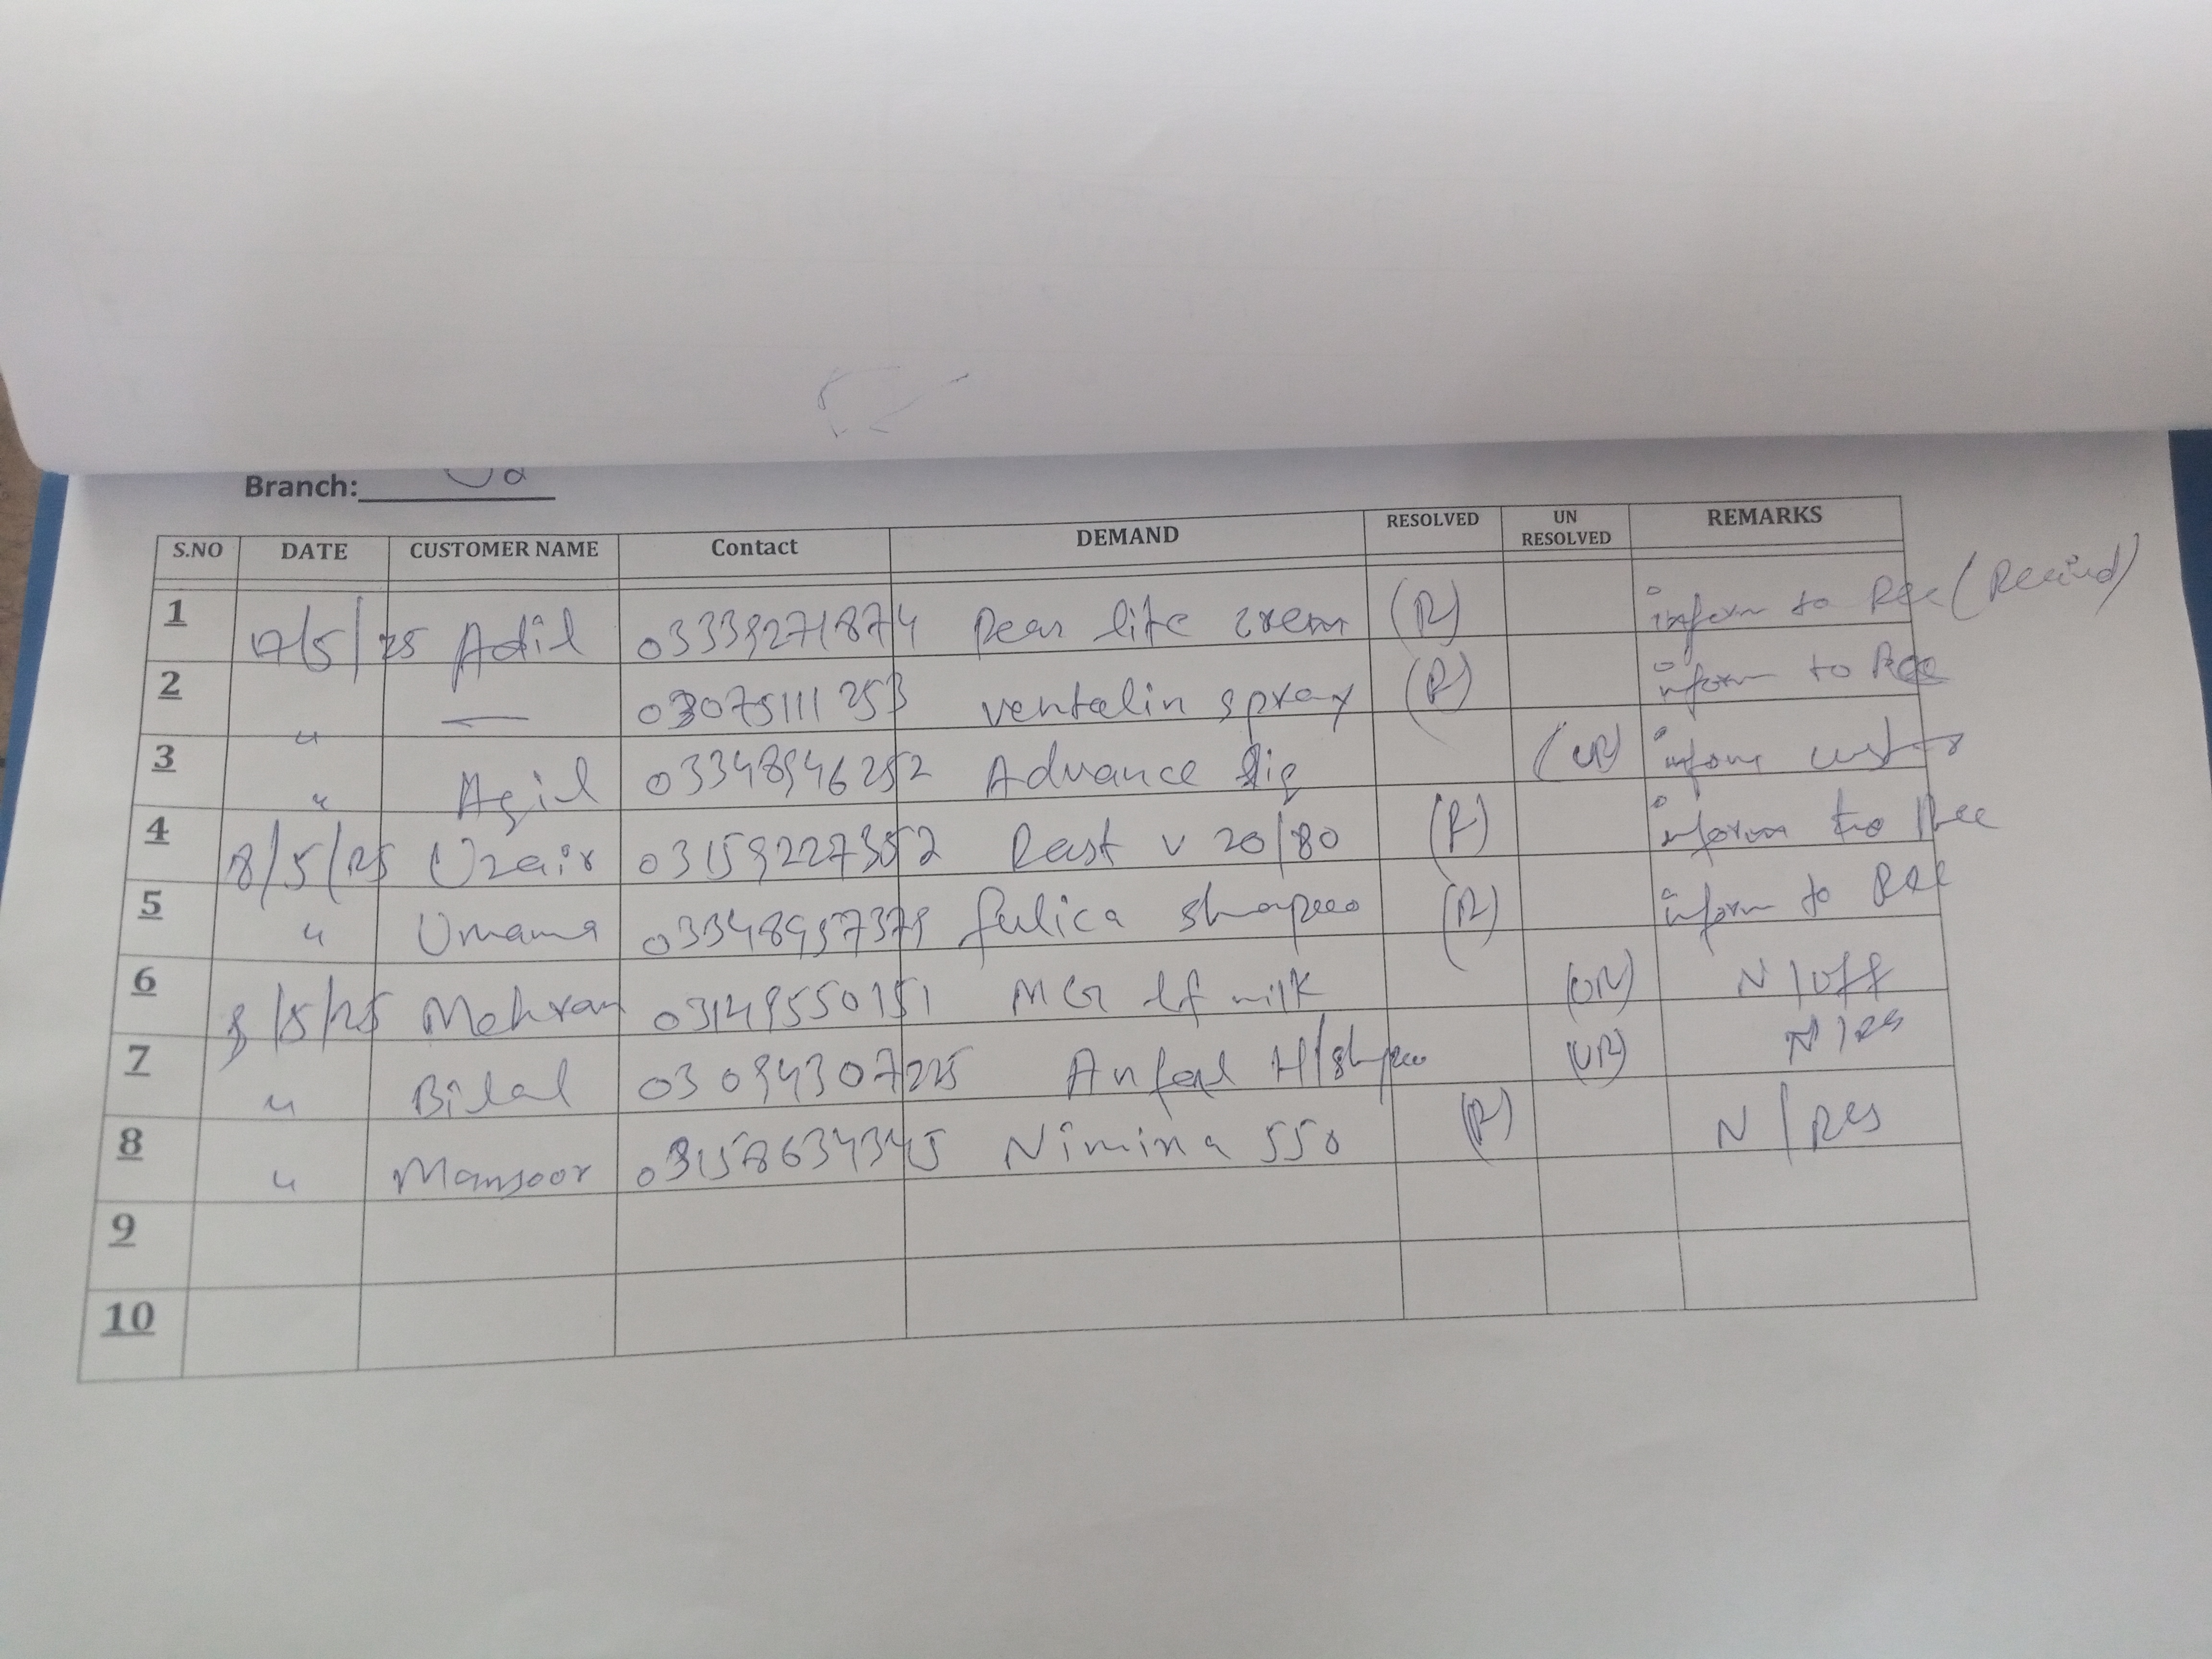 Branch:
S.NO DATE CUSTOMER NAME Contact DEMAND RESOLVED UN RESOLVED REMARKS
1 17/5/25 Adil 03339271874 Pear life crem (R) inform to Rec
2 " — 03075111253 ventalin spray (R) inform to Rec
3 " Aqil 03348946252 Advance (UR) inform
4 8/5/25 Uzair 03159227352 Rast v 20/80 (R) inform to Rec
5 " Umama 03348957379 fulica (R) inform to Rec
6 8/5/25 Mehran 03149550151 lf milk (UR) N/off
7 " Bilal 03094307225 Anfal (UR) N/Res
8 " Mansoor 03158634345 Nimina 550 (R) N/Res
9
10